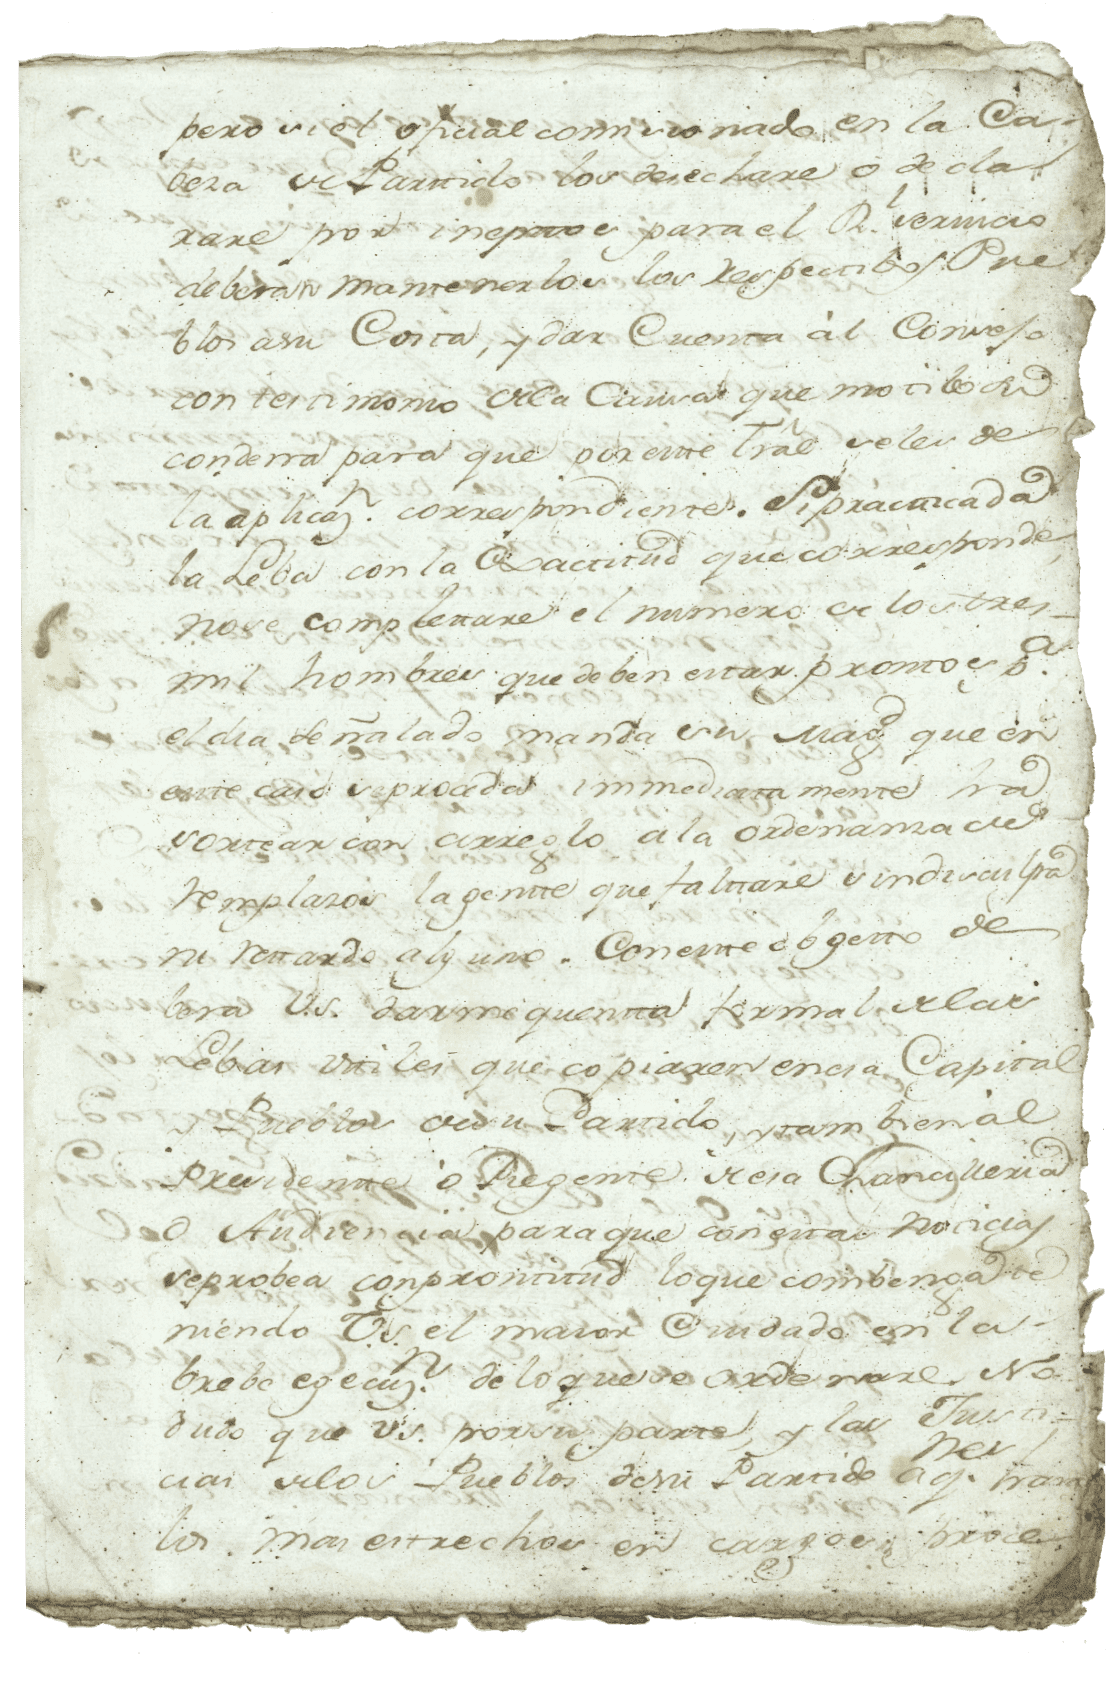 pero si el oficial comisionado en la Ca-
beza de Partido los desechare o decla
rare por ineptos para el Rl. servicio
deberan mantenerlos los respectibos Pue
blos a su Costa, y dar Cuenta ál Consejo
con testimonio de la Causa que motibo su
condena para que por este Trãl se les de
la aplicazn. correspondiente. Si practicada
la Leba con la Exactitud que corresponde,
no se complettare el numero de los tres-
mil hombres que deben estar prontos pa.
el dia señalado manda su Magd que en
este caso se proceda immediatamente ha
sortear con arreglo a la ordenanza de
remplazos la gentte que faltare sin disculpa
ni rettardo alguno. Con este obgetto de
bera V.S. darme quentta formal de las
Lebas uttiles que copiaren en esa Capital
y Pueblos de su Partido, y tambien ál
Presidentte ó Regente de esa Chancilleria
o Audiencia para que con estas noticias
se probea con prontitud lo que combenga te
niendo V.S. el maior Cuidado en la-
brebe egecuzn. de lo que se ordenare. No
dudo que V.S. por su parte, y las Justi-
cias de los Pueblos de su Partido a qnes. hara
los mas estrechos en cargos, proce-